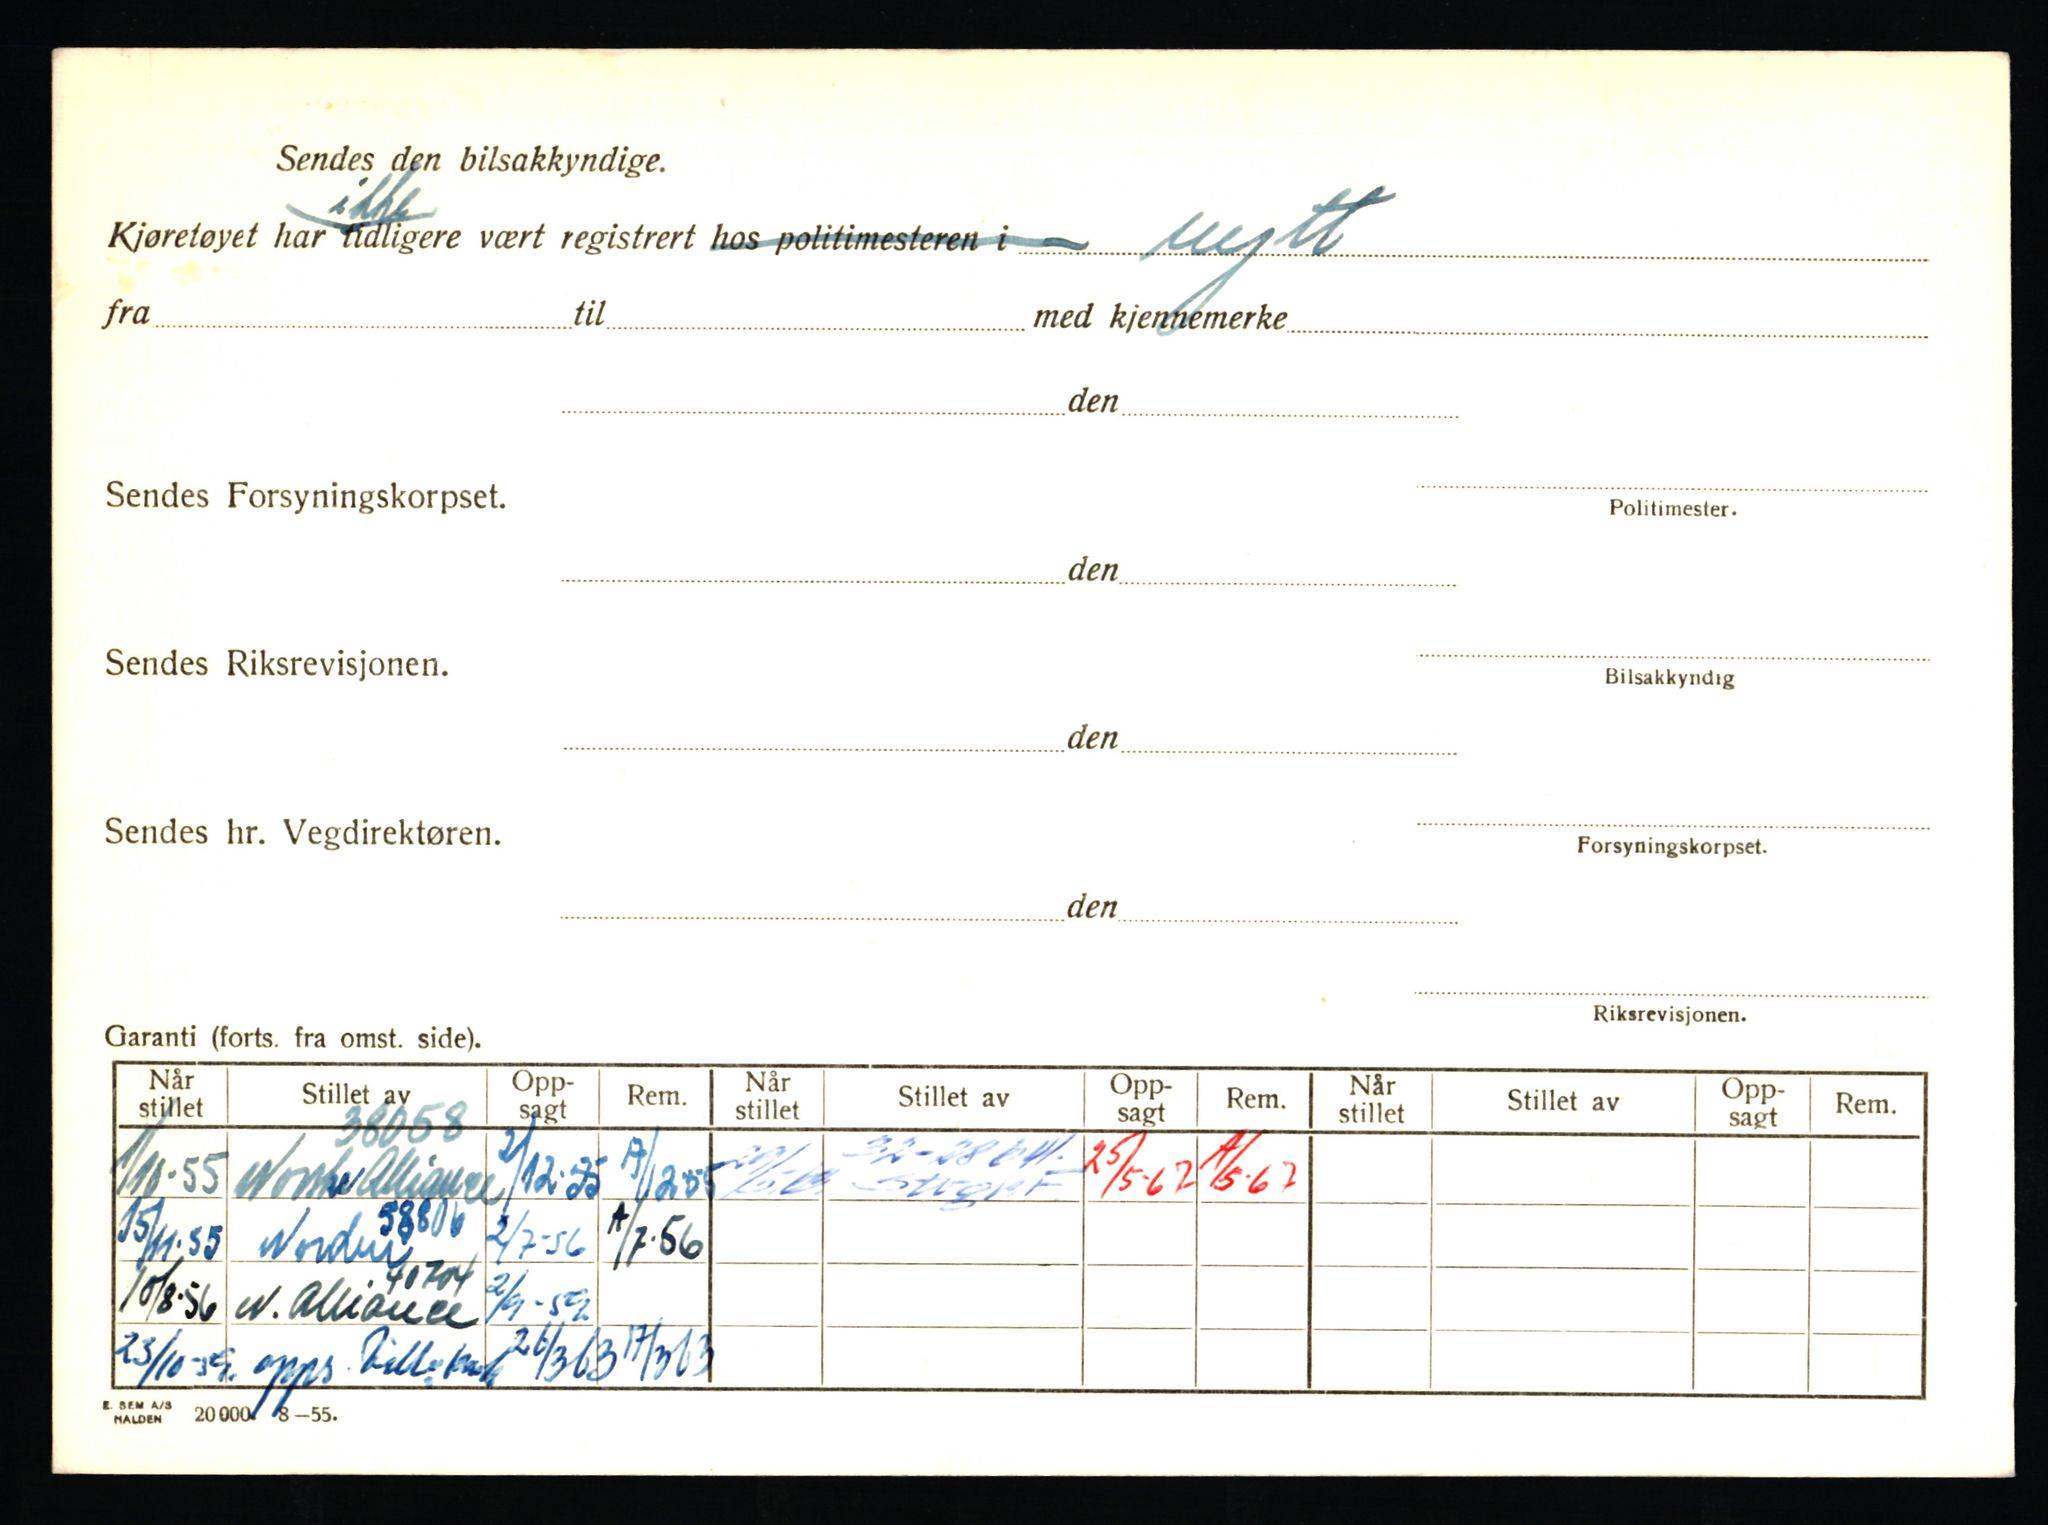 Sendes den bilsakkyndige.
ikke
Kjøretøyet har tidligere vært registrert hos politimesteren i nytt
fra til med kjennemerke
den
Sendes Forsyningskorpset.
Politimester.
den
Sendes Riksrevisjonen.
Bilsakkyndig
den
Sendes hr. Vegdirektøren.
Forsyningskorpset.
den
Riksrevisjonen.
Garanti (forts. fra omst. side).
Når stillet Stillet av Opp-sagt Rem. Når stillet Stillet av Opp-sagt Rem. Når stillet Stillet av Opp-sagt Rem.
38058
1/10-55 Norske Alliance 2/12-55 A/12-55 25/5-67 A/5-67
58806
15/11-55 Norden 2/7-56 A/7-56
40704
10/8-56 N. Alliance 2/9-59
23/10-59 opps. 26/3 63 17/3 63
E. SEM A/S
HALDEN 20 000. 8—55.